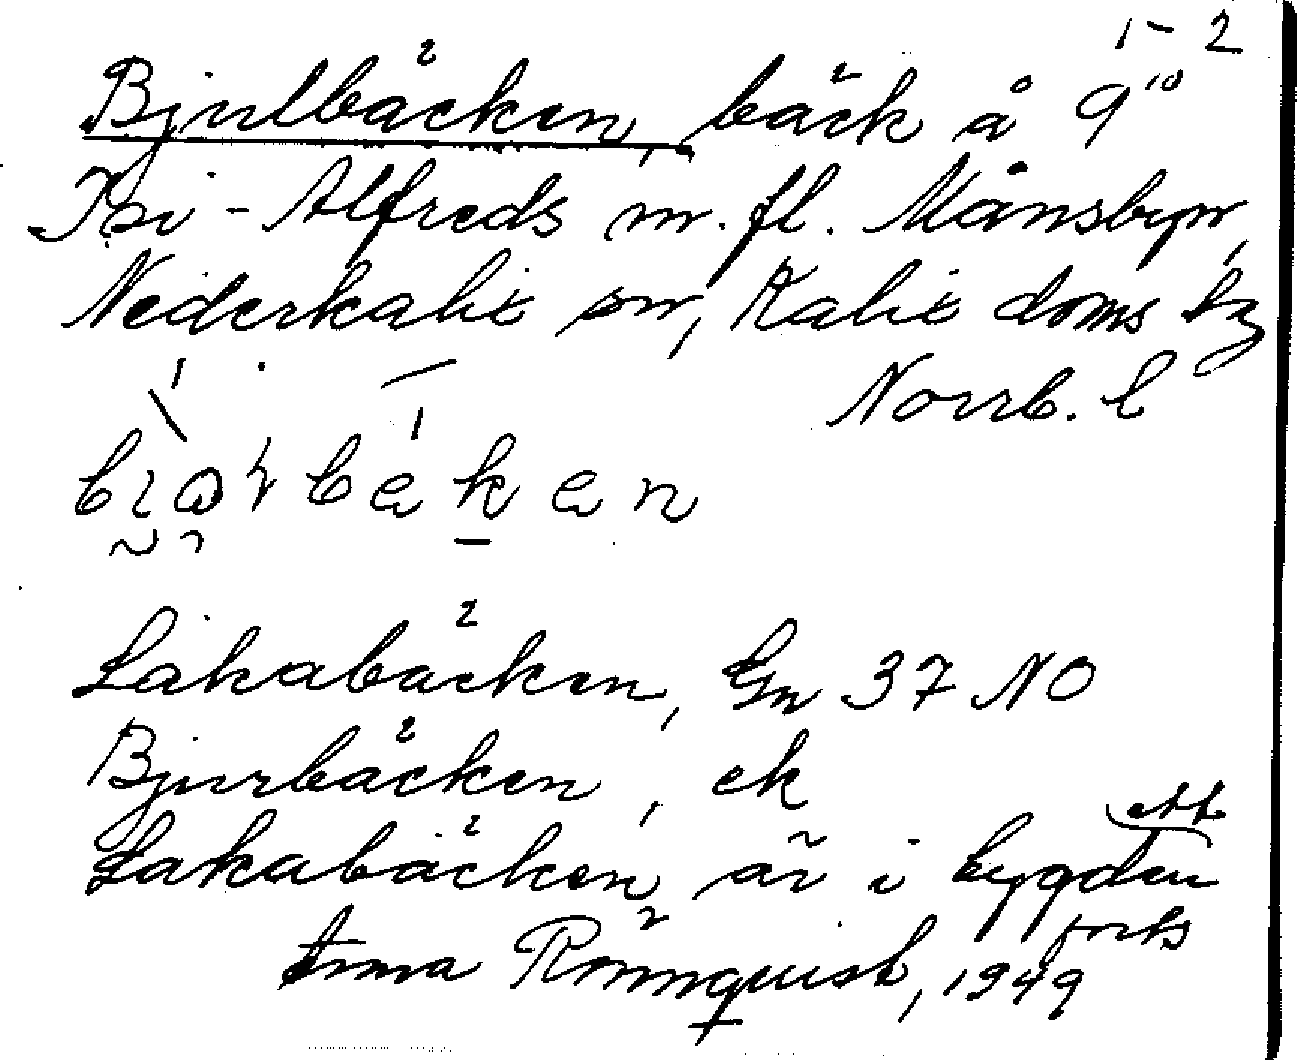 1-2
Bjulbäcken, bäck å 9¹⁰
Isi-Alfreds m.fl. Månsbyn,
Nederkalix sn, Kalix doms tg
Norrb. l
Lakabäcken, Gn 37 NO
Bjurbäcken, ek
Lakabäcken är i bygden ett
forts
Anna Rönnquist, 1949